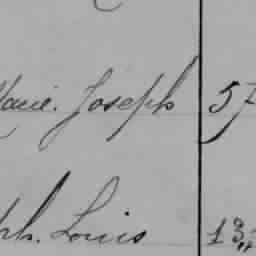 Marie. Joseph 57
ph. Louis 13,